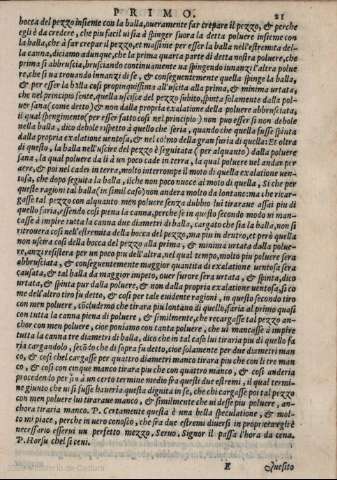 PRIMO. 21
bocca del pezzo insieme con la balla, oueramente far crepare il pezzo, & perche
egli è da credere, che piu facil uista à spinger fuora la detta poluere insieme con
la balla, che à far crepar il pezzo, et massime per esser la balla nell'estremità del-
la canna, diciamo adunque, che la prima quarta parte di detta nostra poluere, che
prima si abbruscia, bruscando continuamente ua spingendo innanzi l'altra polue
re, che si ua trouando innanzi di se, & conseguentemente quella spinge la balla,
& per esser la balla cosi propinquissima all'uscita alla prima, & minima urtata,
che nel principio sente, quella uscisce del pezzo subito, spinta solamente dalla pol-
uer sana (come detto) & non dalla propria exalatione della poluere abbrusciata,
il qual spengimento (per esser fatto cosi nel principio) non puo esser se non debole
nella balla, dico debole rispetto à quello che seria, quando che quella fusse spinta
dalla propria exalatione uentosa, & nel colmo della gran furia di quella: Et oltra
di questo, la balla nell'uscire del pezzo è seguitata (per alquanto) dalla poluere
sana, la qual poluere da li à un poco cade in terra, la qual poluere nel andar per
aere, & poi nel cader in terra, molto interrompe il moto di quella exalatione uen-
tosa, che dopo seguita la balla, il che non poco nuoce al moto di quella, Si che per
queste ragioni tal balla (in simil caso) non andera molto da lontano: ma che ricar-
gasse tal pezzo con alquanto men poluere senza dubbio lui tiraraue assai piu di
quello saria, essendo cosi piena la canna, perche se in questo secondo modo ui man-
casse à impire tutta la canna due diametri di balla, cargato che sia la balla, non si
ritrouera cosi nell'estremità della bocca del pezzo, ma piu in drento, et però quella
non uscira cosi della bocca del pezzo alla prima, & minima urtata dalla polue-
re, anzi resistera per un poco piu dell'altra, nel qual tempo, molto piu poluere sera
abbrusciata, & conseguentemente maggior quantità di exalatione uentosa sera
causata, & tal balla da maggior impeto, ouer furore sera urtata, & spinta, dico
urtata, & spinta pur dalla poluere, & non dalla propria exalatione uentosa, si co
me dell'altro tiro fu detto, & cosi per tale euidente ragioni, in questo secondo tiro
con men poluere, cōcludemo che tirara piu lontano di quello faria al primo quasi
con tutta la canna piena di poluere, & similmente, che recargasse tal pezzo an-
chor con men poluere, cioe poniamo con tanta poluere, che ui mancasse à impire
tutta la canna tre diametri di balla, dico che in tal caso lui tirara piu di quello fa
ria cargandolo, secōdo che di sopra fu detto, cioe solamente per due diametri man
co, & cosi chel cargasse per quattro diametri manco tirara piu che con li tre man
co, & cosi con cinque manco tirara piu che con quattro manco, & cosi anderia
procedendo per fin à un certo termine medio fra queste due estremi, il qual termi-
ne giunto che ui si fusse hauerria questa dignità in se, che chi cargasse poi tal pezzo
con men poluere lui tiraraue manco, & similmente chi ui desse piu poluere, an-
chora tiraria manco. P. Certamente questa è una bella speculatione, & mol-
to mi piace, perche in uero conosco, che fra due estremi diuersi in proprietà egli è
necessario esserui un perfetto mezzo. Seruo. Signor il passa l'hora da cena.
P. Horsu chel si ceni.
E Quesito